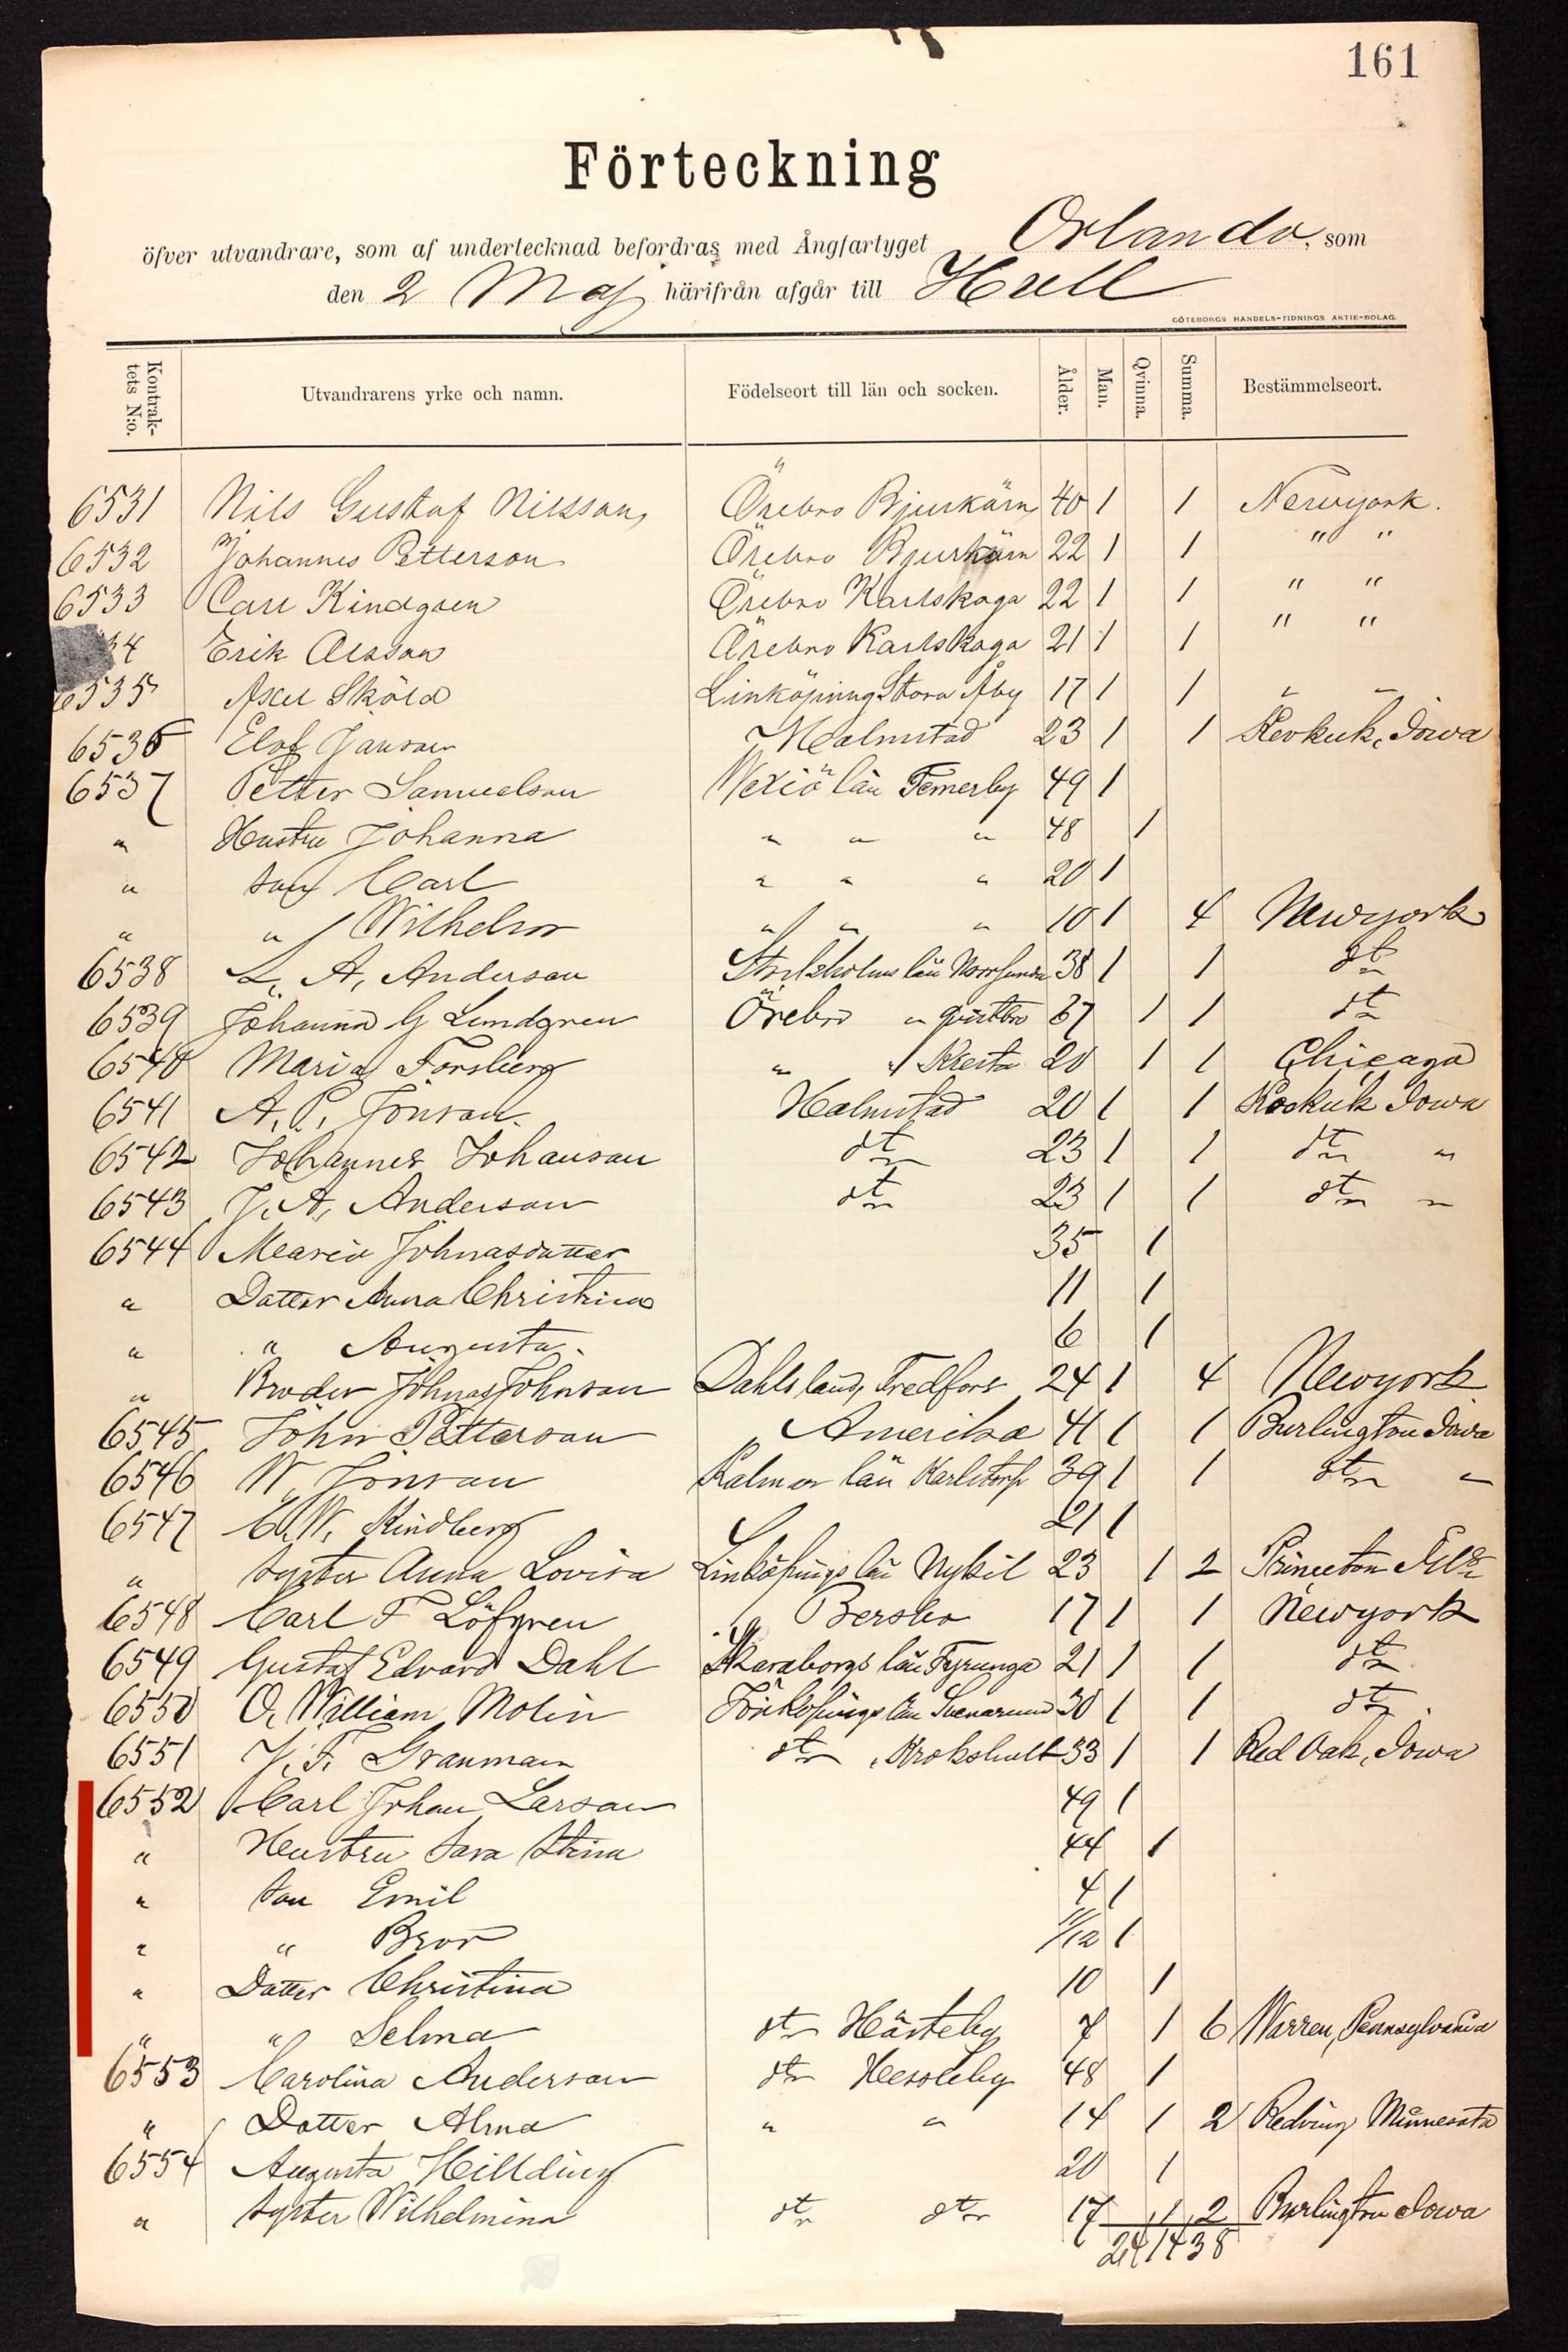 161
Förteckning
öfver utvandrare, som af undertecknad befordras med Ångfartyget Orlando, som
den 2 Maj härifrån afgår till Hull
GÖTEBORGS HANDELS-TIDNINGS AKTIE-BOLAG.
Kontraktets N:o. Utvandrarens yrke och namn. Födelseort till län och socken. Ålder. Man. Qvinna. Summa. Bestämmelseort.
6531 Nils Gustaf Nilsson Örebro Bjurkärn 40 1 1 Newyork.
6532 Johannes Petterson Örebro Bjurkärn 22 1 1 " "
6533 Carl Kindgren Örebro Karlskoga 22 1 1 " "
34 Erik Olsson Örebro Karlskoga 21 1 1 " "
6535 Axel Sköld Linköping Stora Åby 17 1 1 " "
6536 Elof Janson Halmstad 23 1 1 Keokuk, Iowa
6537 Petter Samuelson Wexiö län Femerby 49 1
" Hustru Johanna " " " 48 1
" son Carl " " " 20 1
" " Wilhelm " " " 10 1 4 Newyork
6538 L. A. Anderson Stockholms län Norrsunda 38 1 1 dto
6539 Johanna G Lundgren Örebro " 67 1 1 dto
6540 Maria Forsberg " " 20 1 1 Chicago
6541 A. P. Jonson Halmstad 20 1 1 Keokuk Iowa
6542 Johannes Johanson dto 23 1 1 dto "
6543 J. A. Anderson dto 23 1 1 dto "
6544 Maria Johnasdotter 35 1
" Dotter Anna Christina 11 1
" " Augusta 6 1
" Broder Johnas Johnson Dahlsland, Tredfors 24 1 4 Newyork
6545 John Petterson Amerika 41 1 1 Burlington Iowa
6546 W. Jonson Kalmar län Karlstorp 39 1 1 dto "
6547 C. W. Kindberg 21 1
" syster Anna Lovisa Linköpings län Nykil 23 1 2 Princeton Ills
6548 Carl F Löfgren " Bersbo 17 1 1 Newyork
6549 Gustaf Edvard Dahl Skaraborgs län Fyrunga 21 1 1 dto
6550 O. William Molin Jönköpings län Svenarum 30 1 1 dto
6551 J. F. Granman dto, Krokshult 33 1 1 Red Oak, Iowa
6552 Carl Johan Larson 49 1
" Hustru Sara Stina 44 1
" son Emil 4 1
" " Bror 11/12 1
" Dotter Christina 10 1
" " Selma dto Hästeby 7 1 6 Warren, Pennsylvania
6553 Carolina Anderson dto Hessleby 48 1
" Dotter Alma " " 14 1 2 Redwing Minnesota
6554 Augusta Hillding 20 1
" syster Wilhelmina dto dto 17 1 2 Burlington Iowa
24 14 38